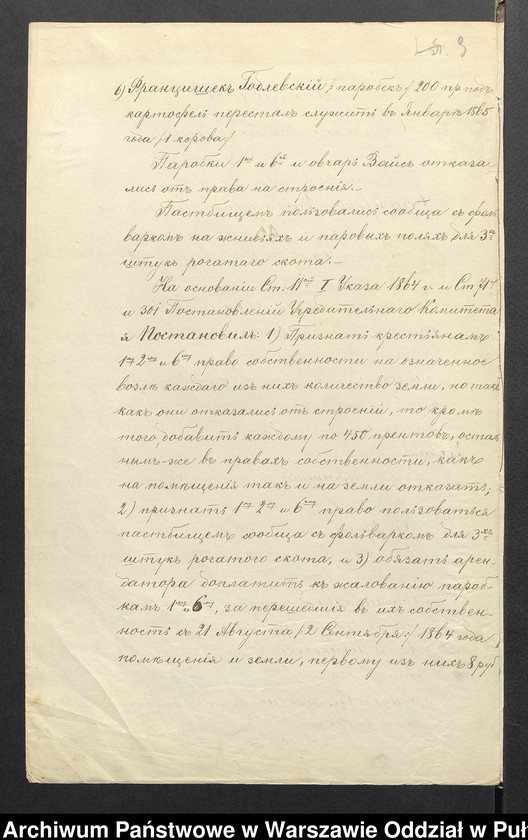 3
6) Францишекъ Годлевскій /: паробекъ:/ 200 пр. подъ
картофель пересталъ служить въ Январѣ 1865
года /: 1 корова:/
Паробки 1ый и 6ой и овчаръ Вайсъ отказа
лись отъ права на строенія.-
Пастбищемъ пользовались сообща съ фоль
варкомъ на жнивьяхъ и паровыхъ поляхъ для 3хъ
штукъ рогатаго скота.-
На основаніи Ст. 11ой I Указа 1864 г. и Ст.
и 301 Постановленій Учредительнаго Комитета
я Постановилъ: 1) Признать крестьянамъ
1му 2му и 6му право собственности на означенное
возлѣ каждаго изъ нихъ количество земли, но такъ
какъ они отказались отъ строеній, то кромѣ
того, добавить каждому по 450 прентовъ, осталь
нымъ-же въ правахъ собственности, какъ
на помѣщенія такъ и на земли отказать;
2) признать 1му 2му и 6му право пользоваться
пастбищемъ сообща съ фольваркомъ для 3хъ
штукъ рогатого скота, и 3) обязать арен-
датора доплатить къ жалованію пароб-
камъ 1му и 6му, за перешедшія въ ихъ собствен-
ность съ 21 Августа /: 2 Сентября:/ 1864 года
помѣщенія и земли, первому изъ нихъ 8 руб
Archiwum Państwowe w Warszawie Oddział w Puł